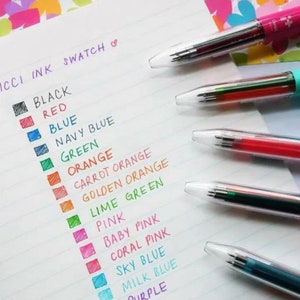 ICCI INK SWATCH ♡
BLACK
RED
BLUE
NAVY BLUE
GREEN
ORANGE
CARROT ORANGE
GOLDEN ORANGE
LIME GREEN
PINK
BABY PINK
CORAL PINK
SKY BLUE
MILK BLUE
PURPLE